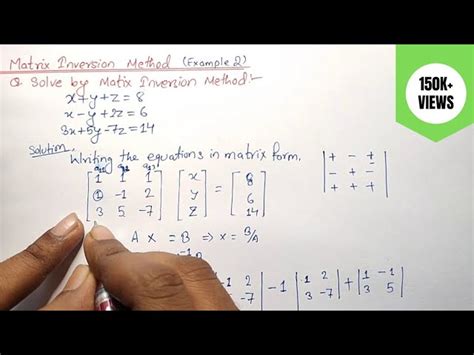 Matrix Inversion Method (Example 2)
Q. Solve by Matix Inversion Method:-
x+y+z=8
x-y+2z=6
3x+5y-7z=14
Solution.
Writing the equations in matrix form.
1 1 1 x 8
1 -1 2 y = 6
3 5 -7 z 14
+ - +
- + -
+ - +
A X = B ⇒ x = B/A
-1 2 -1 1 2 + 1 -1
-7 3 -7 3 5
150K+
VIEWS